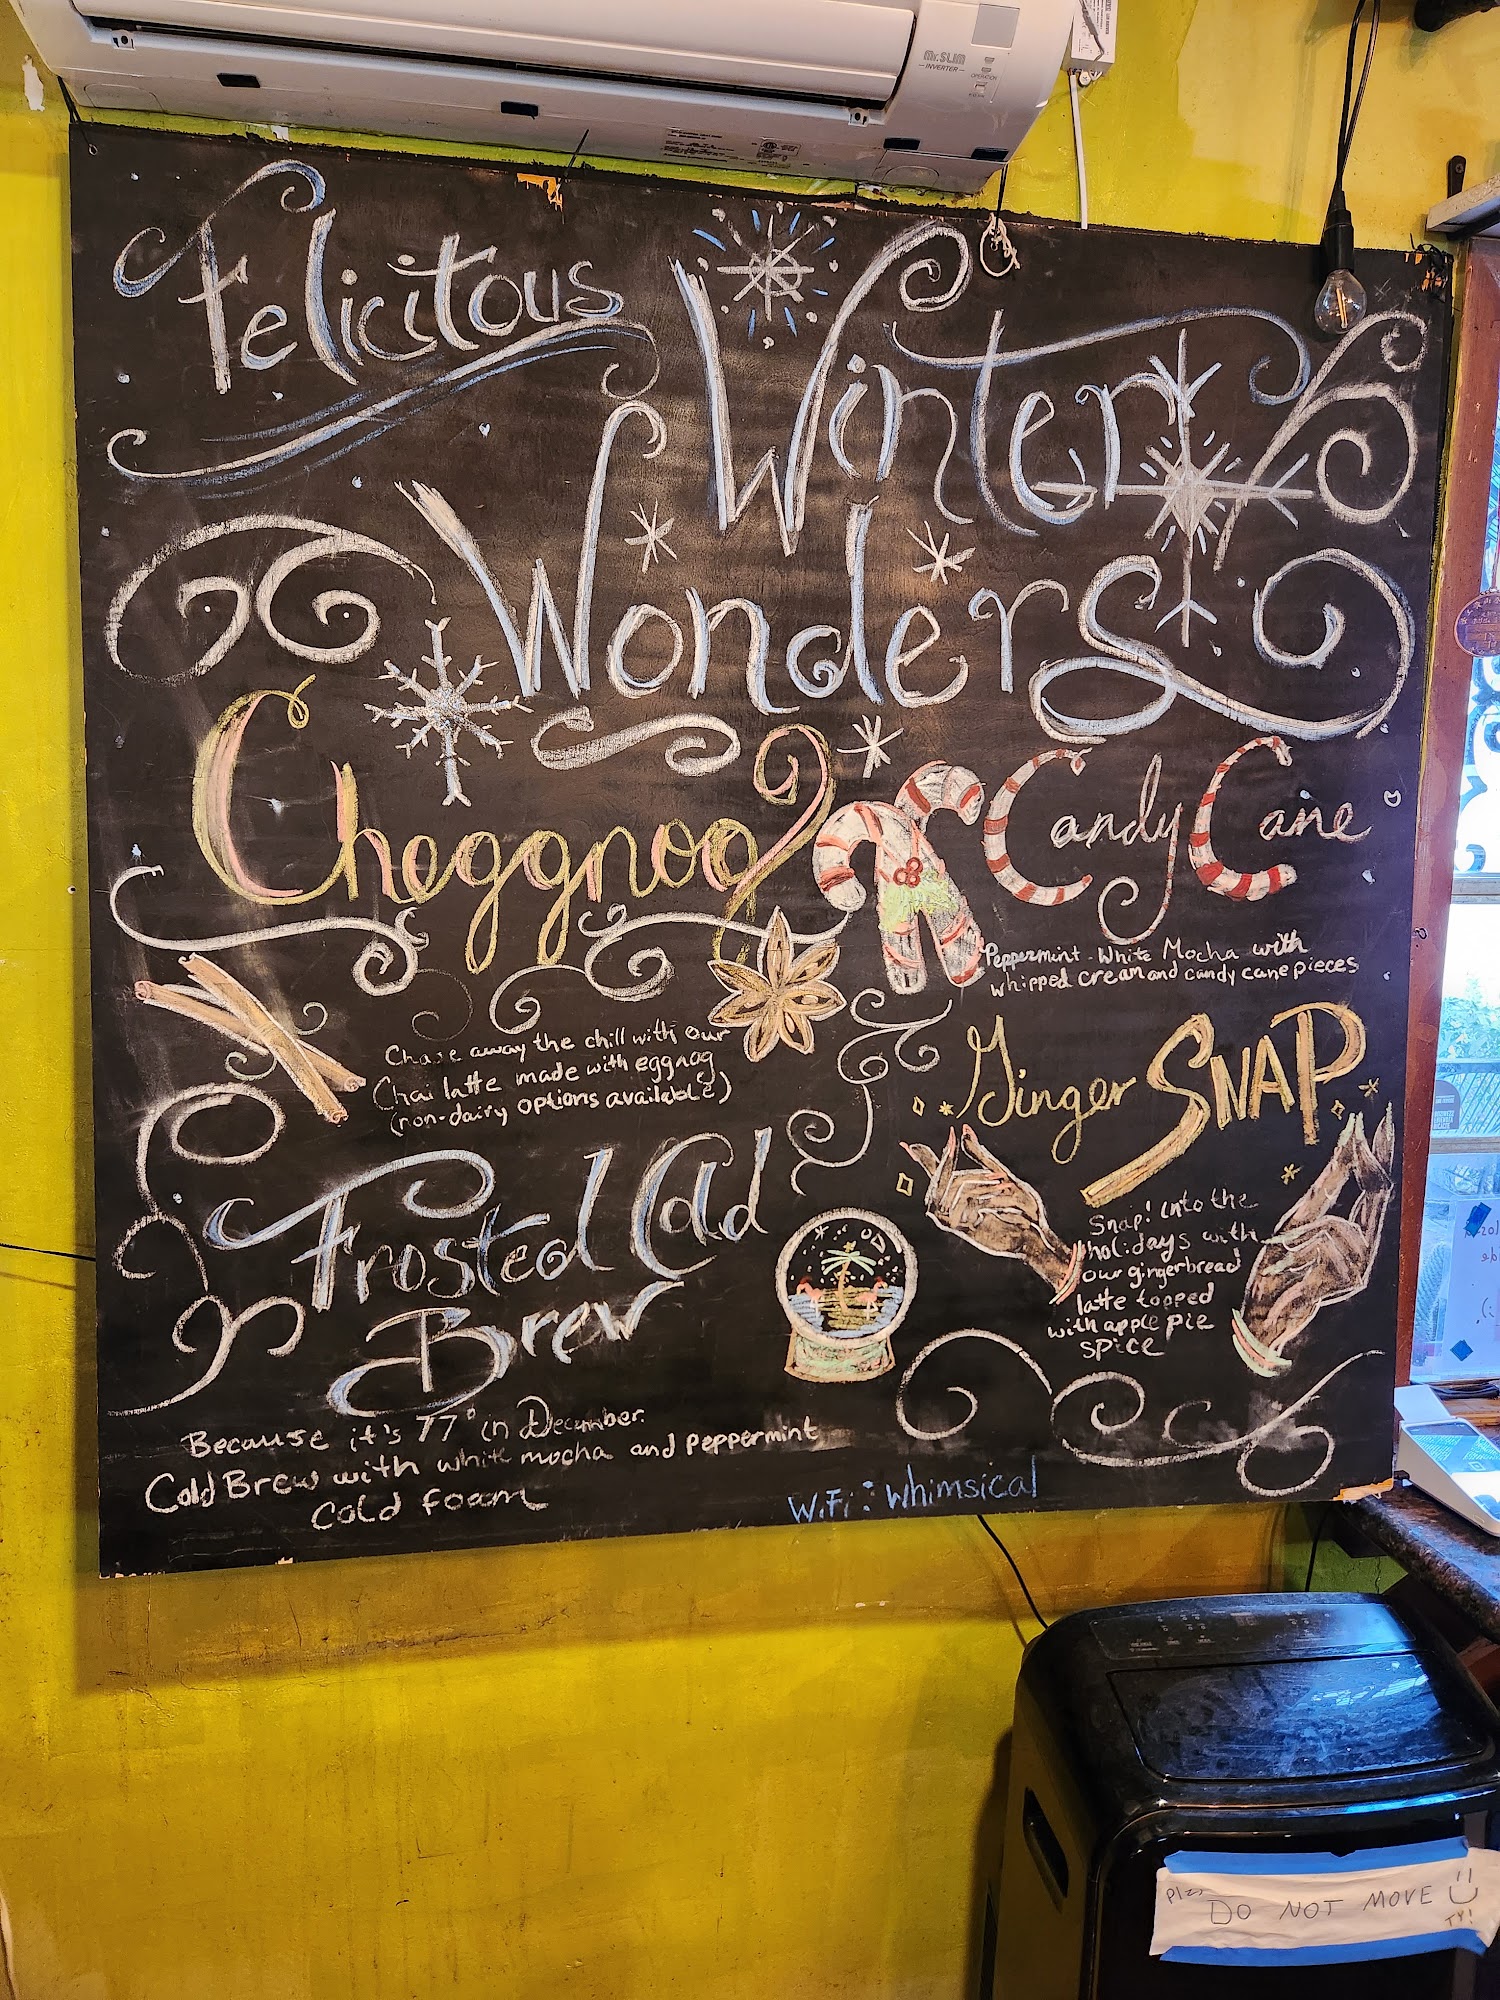 Mr.SLIM
INVERTER
OPERATION
Felicitous
Winter
Wonders
Cheggnog
Chase away the chill with our
Chai latte made with eggnog
(non-dairy options available)
Candy Cane
Peppermint - White Mocha with
whipped cream and candy cane pieces
Ginger SNAP
Snap! into the
holidays with
our gingerbread
latte topped
with apple pie
spice
Frosted Cold
Brew
Because it's 77° in December.
Cold Brew with white mocha and peppermint
cold foam
WiFi: whimsical
Pls
DO NOT MOVE
TY!